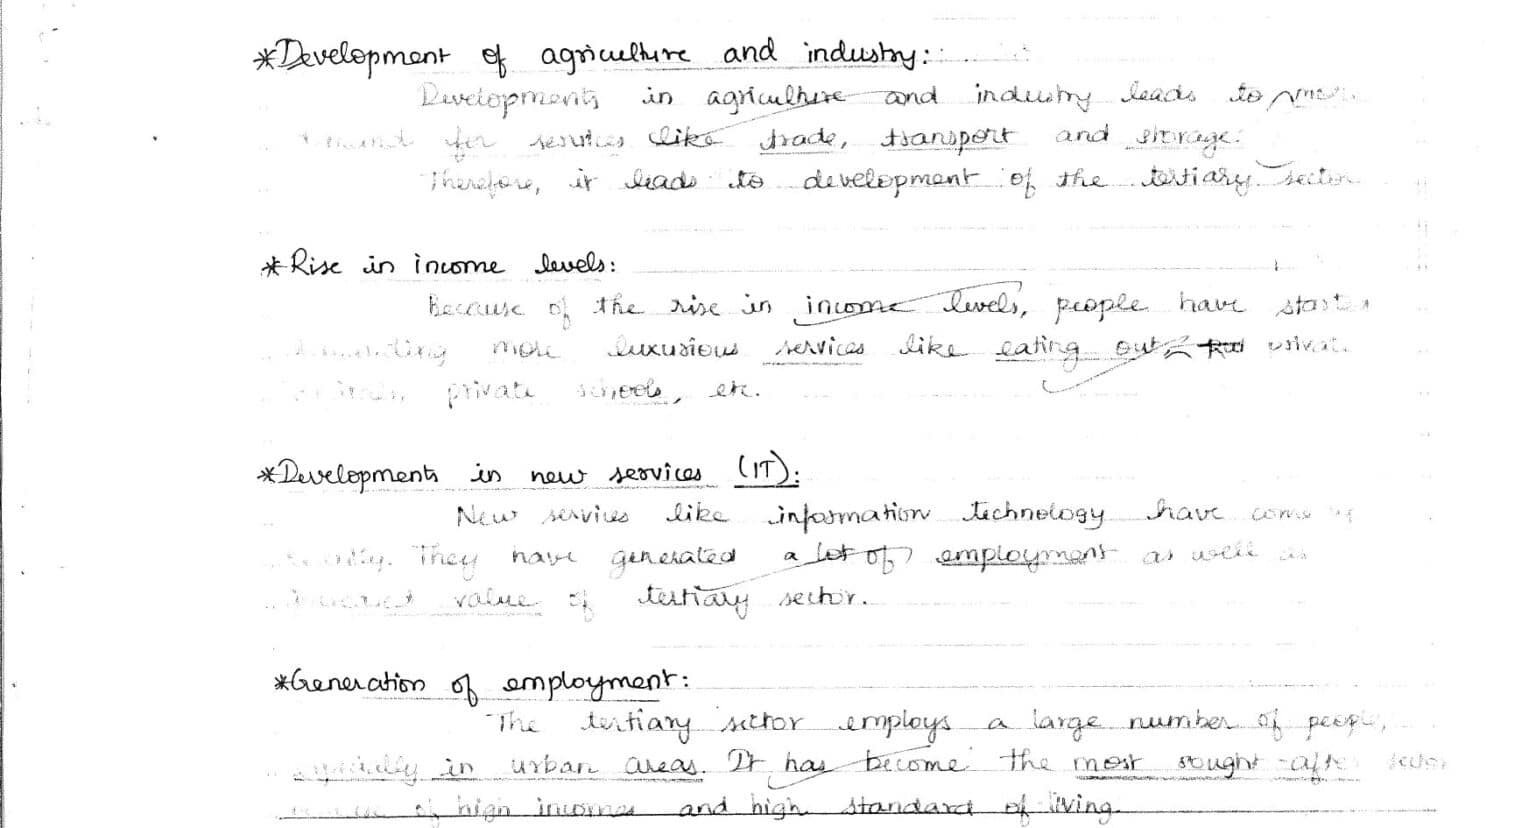 *Development of agriculture and industry:
Developments in agriculture and industry leads to more
demand for services like trade, transport and storage.
Therefore, it leads to development of the tertiary sector
*Rise in income levels:
Because of the rise in income levels, people have start
demanding more luxurious services like eating out, privat
private schools, etc.
*Developments in new services (IT):
New services like information technology have come up
They have generated a lot of employment as well as
value of tertiary sector.
*Generation of employment:
The tertiary sector employs a large number of people,
especially in urban areas. It has become the most sought-after sector
because of high incomes and high standard of living.